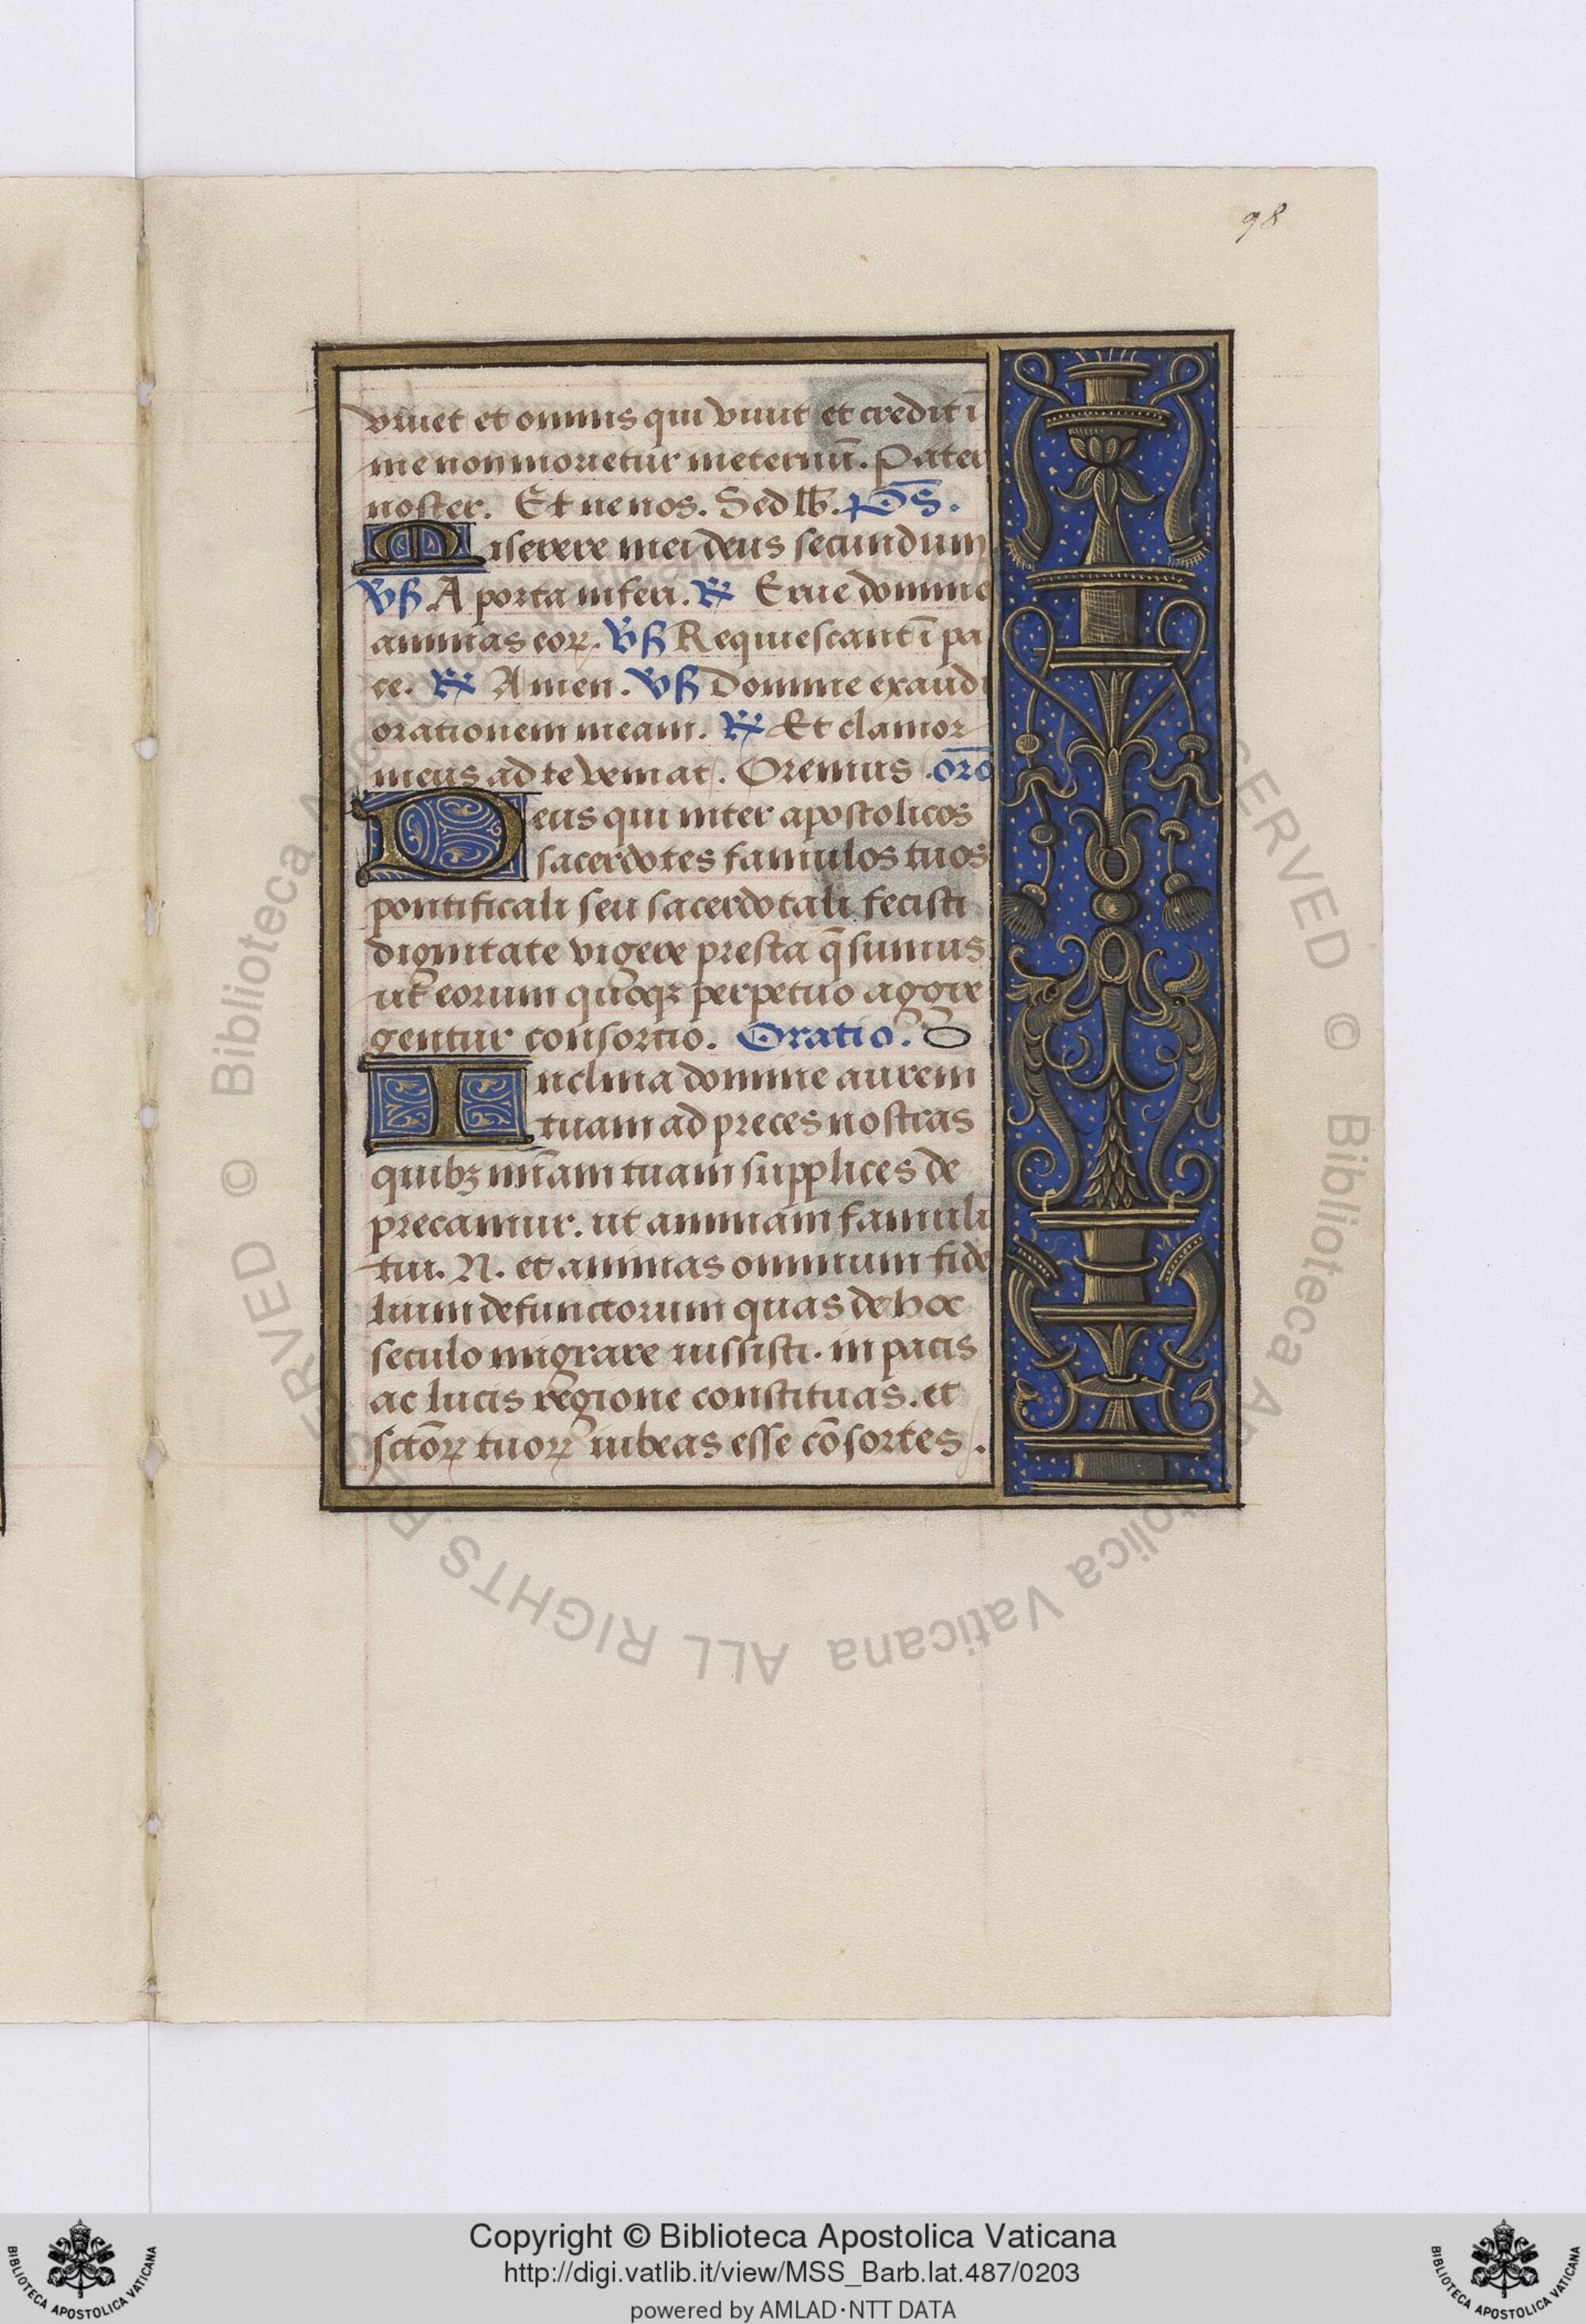 98
viuet et omnis qui viuit et credit ī
me non morietur ineternū. Pater
noster. Et ne nos. Sed lb̄. p̄s.
Miserere mei deus secundum
v̄ß A porta inferi. ℟ Erue domine
animas eoꝝ. v̄ß Requiescant ī pa
ce. ℟ Amen. v̄ß Domine exaudi
orationem meam. ℟ Et clamor
meus ad te veniat. Oremus. orō
Deus qui inter apostolicos
sacerdotes famulos tuos
pontificali seu sacerdotali fecisti
dignitate vigere presta q̄sumus
ut eorum quoqꝫ perpetuo aggre
gentur consortio. Oratio.
Inclina domine aurem
tuam ad preces nostras
quibꝫ mīam tuam supplices de
precamur. ut animam famuli
tui. N. et animas omnium fide
lium defunctorum quas de hoc
seculo migrare iussisti. in pacis
ac lucis regione constituas. et
sctōꝝ tuoꝝ iubeas esse cōsortes.
© Biblioteca Apostolica Vaticana ALL RIGHTS RESERVED
Copyright © Biblioteca Apostolica Vaticana
http://digi.vatlib.it/view/MSS_Barb.lat.487/0203
powered by AMLAD·NTT DATA
BIBLIOTECA APOSTOLICA VATICANA
BIBLIOTECA APOSTOLICA VATICANA